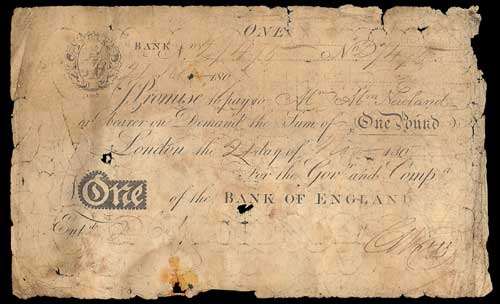 ONE
BANK No
No
180
I Promise to pay to Mr. Abm. Newland
or bearer on Demand the Sum of One Pound
London the day of 180
For the Govr. and Compa.
One
of the BANK OF ENGLAND
Entd.